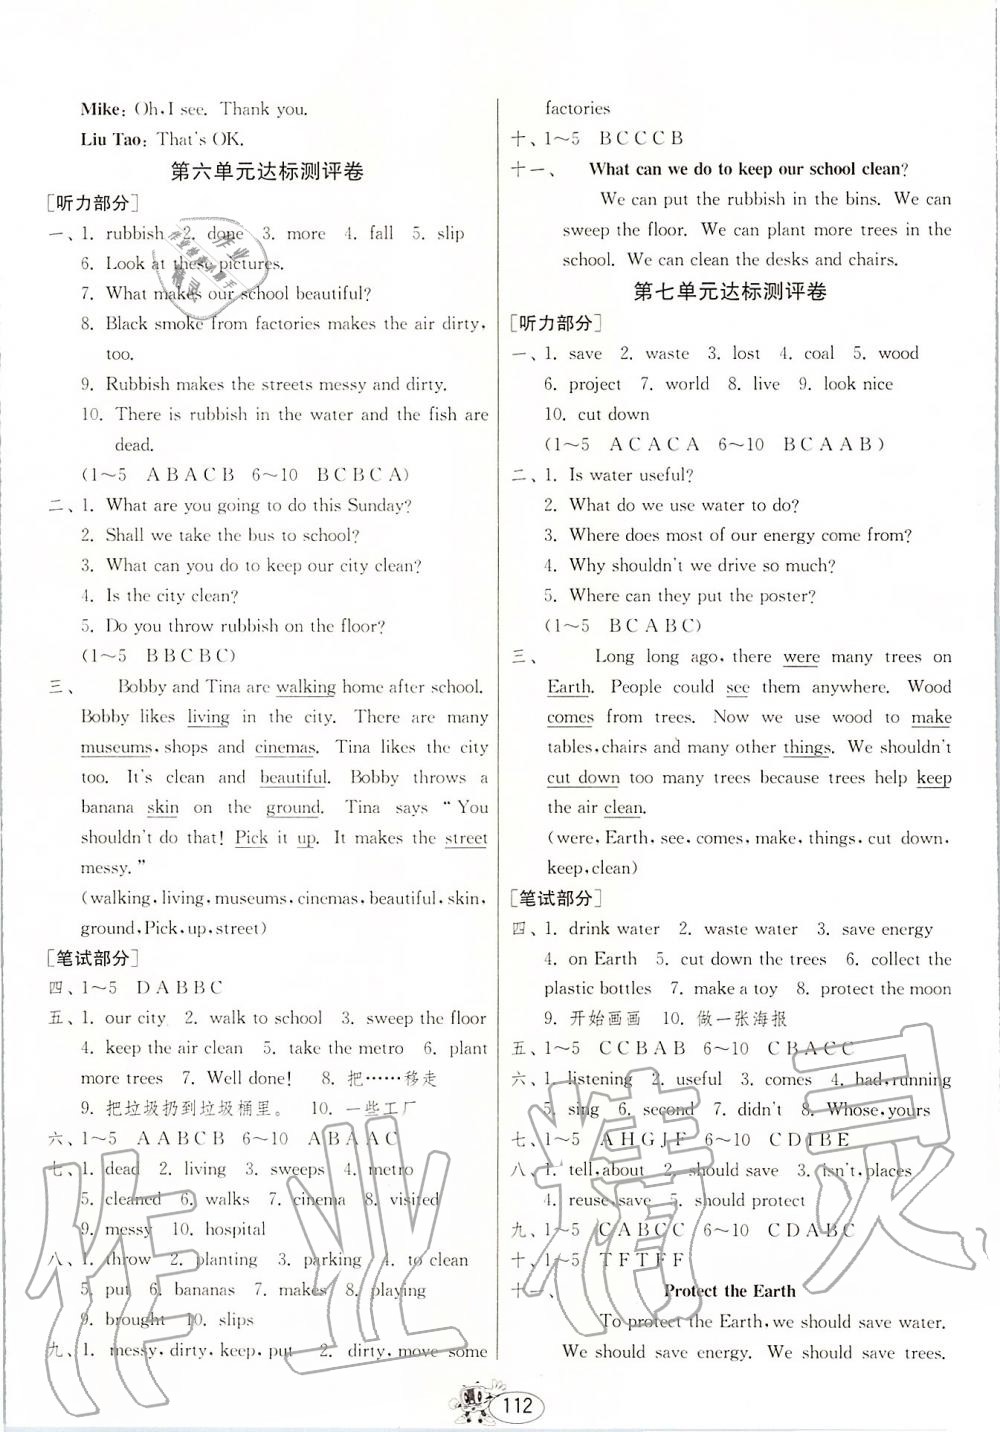 Mike: Oh, I see. Thank you.
Liu Tao: That's OK.
第六单元达标测评卷
[听力部分]
一、1. rubbish 2. done 3. more 4. fall 5. slip
6. Look at these pictures.
7. What makes our school beautiful?
8. Black smoke from factories makes the air dirty,
too.
9. Rubbish makes the streets messy and dirty.
10. There is rubbish in the water and the fish are
dead.
(1~5 A B A C B 6~10 B C B C A)
二、1. What are you going to do this Sunday?
2. Shall we take the bus to school?
3. What can you do to keep our city clean?
4. Is the city clean?
5. Do you throw rubbish on the floor?
(1~5 B B C B C)
三、 Bobby and Tina are walking home after school.
Bobby likes living in the city. There are many
museums, shops and cinemas. Tina likes the city
too. It's clean and beautiful. Bobby throws a
banana skin on the ground. Tina says “You
shouldn't do that! Pick it up. It makes the street
messy.”
(walking, living, museums, cinemas, beautiful, skin,
ground, Pick, up, street)
[笔试部分]
四、1~5 D A B B C
五、1. our city 2. walk to school 3. sweep the floor
4. keep the air clean 5. take the metro 6. plant
more trees 7. Well done! 8. 把……移走
9. 把垃圾扔到垃圾桶里。 10. 一些工厂
六、1~5 A A B C B 6~10 A B A A C
七、1. dead 2. living 3. sweeps 4. metro
5. cleaned 6. walks 7. cinema 8. visited
9. messy 10. hospital
八、1. throw 2. planting 3. parking 4. to clean
5. put 6. bananas 7. makes 8. playing
9. brought 10. slips
九、1. messy, dirty, keep, put 2. dirty, move some
factories
十、1~5 B C C C B
十一、 What can we do to keep our school clean?
We can put the rubbish in the bins. We can
sweep the floor. We can plant more trees in the
school. We can clean the desks and chairs.
第七单元达标测评卷
[听力部分]
一、1. save 2. waste 3. lost 4. coal 5. wood
6. project 7. world 8. live 9. look nice
10. cut down
(1~5 A C A C A 6~10 B C A A B)
二、1. Is water useful?
2. What do we use water to do?
3. Where does most of our energy come from?
4. Why shouldn't we drive so much?
5. Where can they put the poster?
(1~5 B C A B C)
三、 Long long ago, there were many trees on
Earth. People could see them anywhere. Wood
comes from trees. Now we use wood to make
tables, chairs and many other things. We shouldn't
cut down too many trees because trees help keep
the air clean.
(were, Earth, see, comes, make, things, cut down,
keep, clean)
[笔试部分]
四、1. drink water 2. waste water 3. save energy
4. on Earth 5. cut down trees 6. collect the
plastic bottles 7. make a toy 8. protect the moon
9. 开始画画 10. 做一张海报
五、1~5 C C B A B 6~10 C B A C C
六、1. listening 2. useful 3. comes 4. had, running
5. sing 6. second 7. didn't 8. Whose, yours
七、1~5 A H G J F 6~10 C D I B E
八、1. tell, about 2. should save 3. isn't, places
4. reuse, save 5. should protect
九、1~5 C A B C C 6~10 C D A B C
十、1~5 T F T F F
十一、 Protect the Earth
To protect the Earth, we should save water.
We should save energy. We should save trees.
112
作业精灵